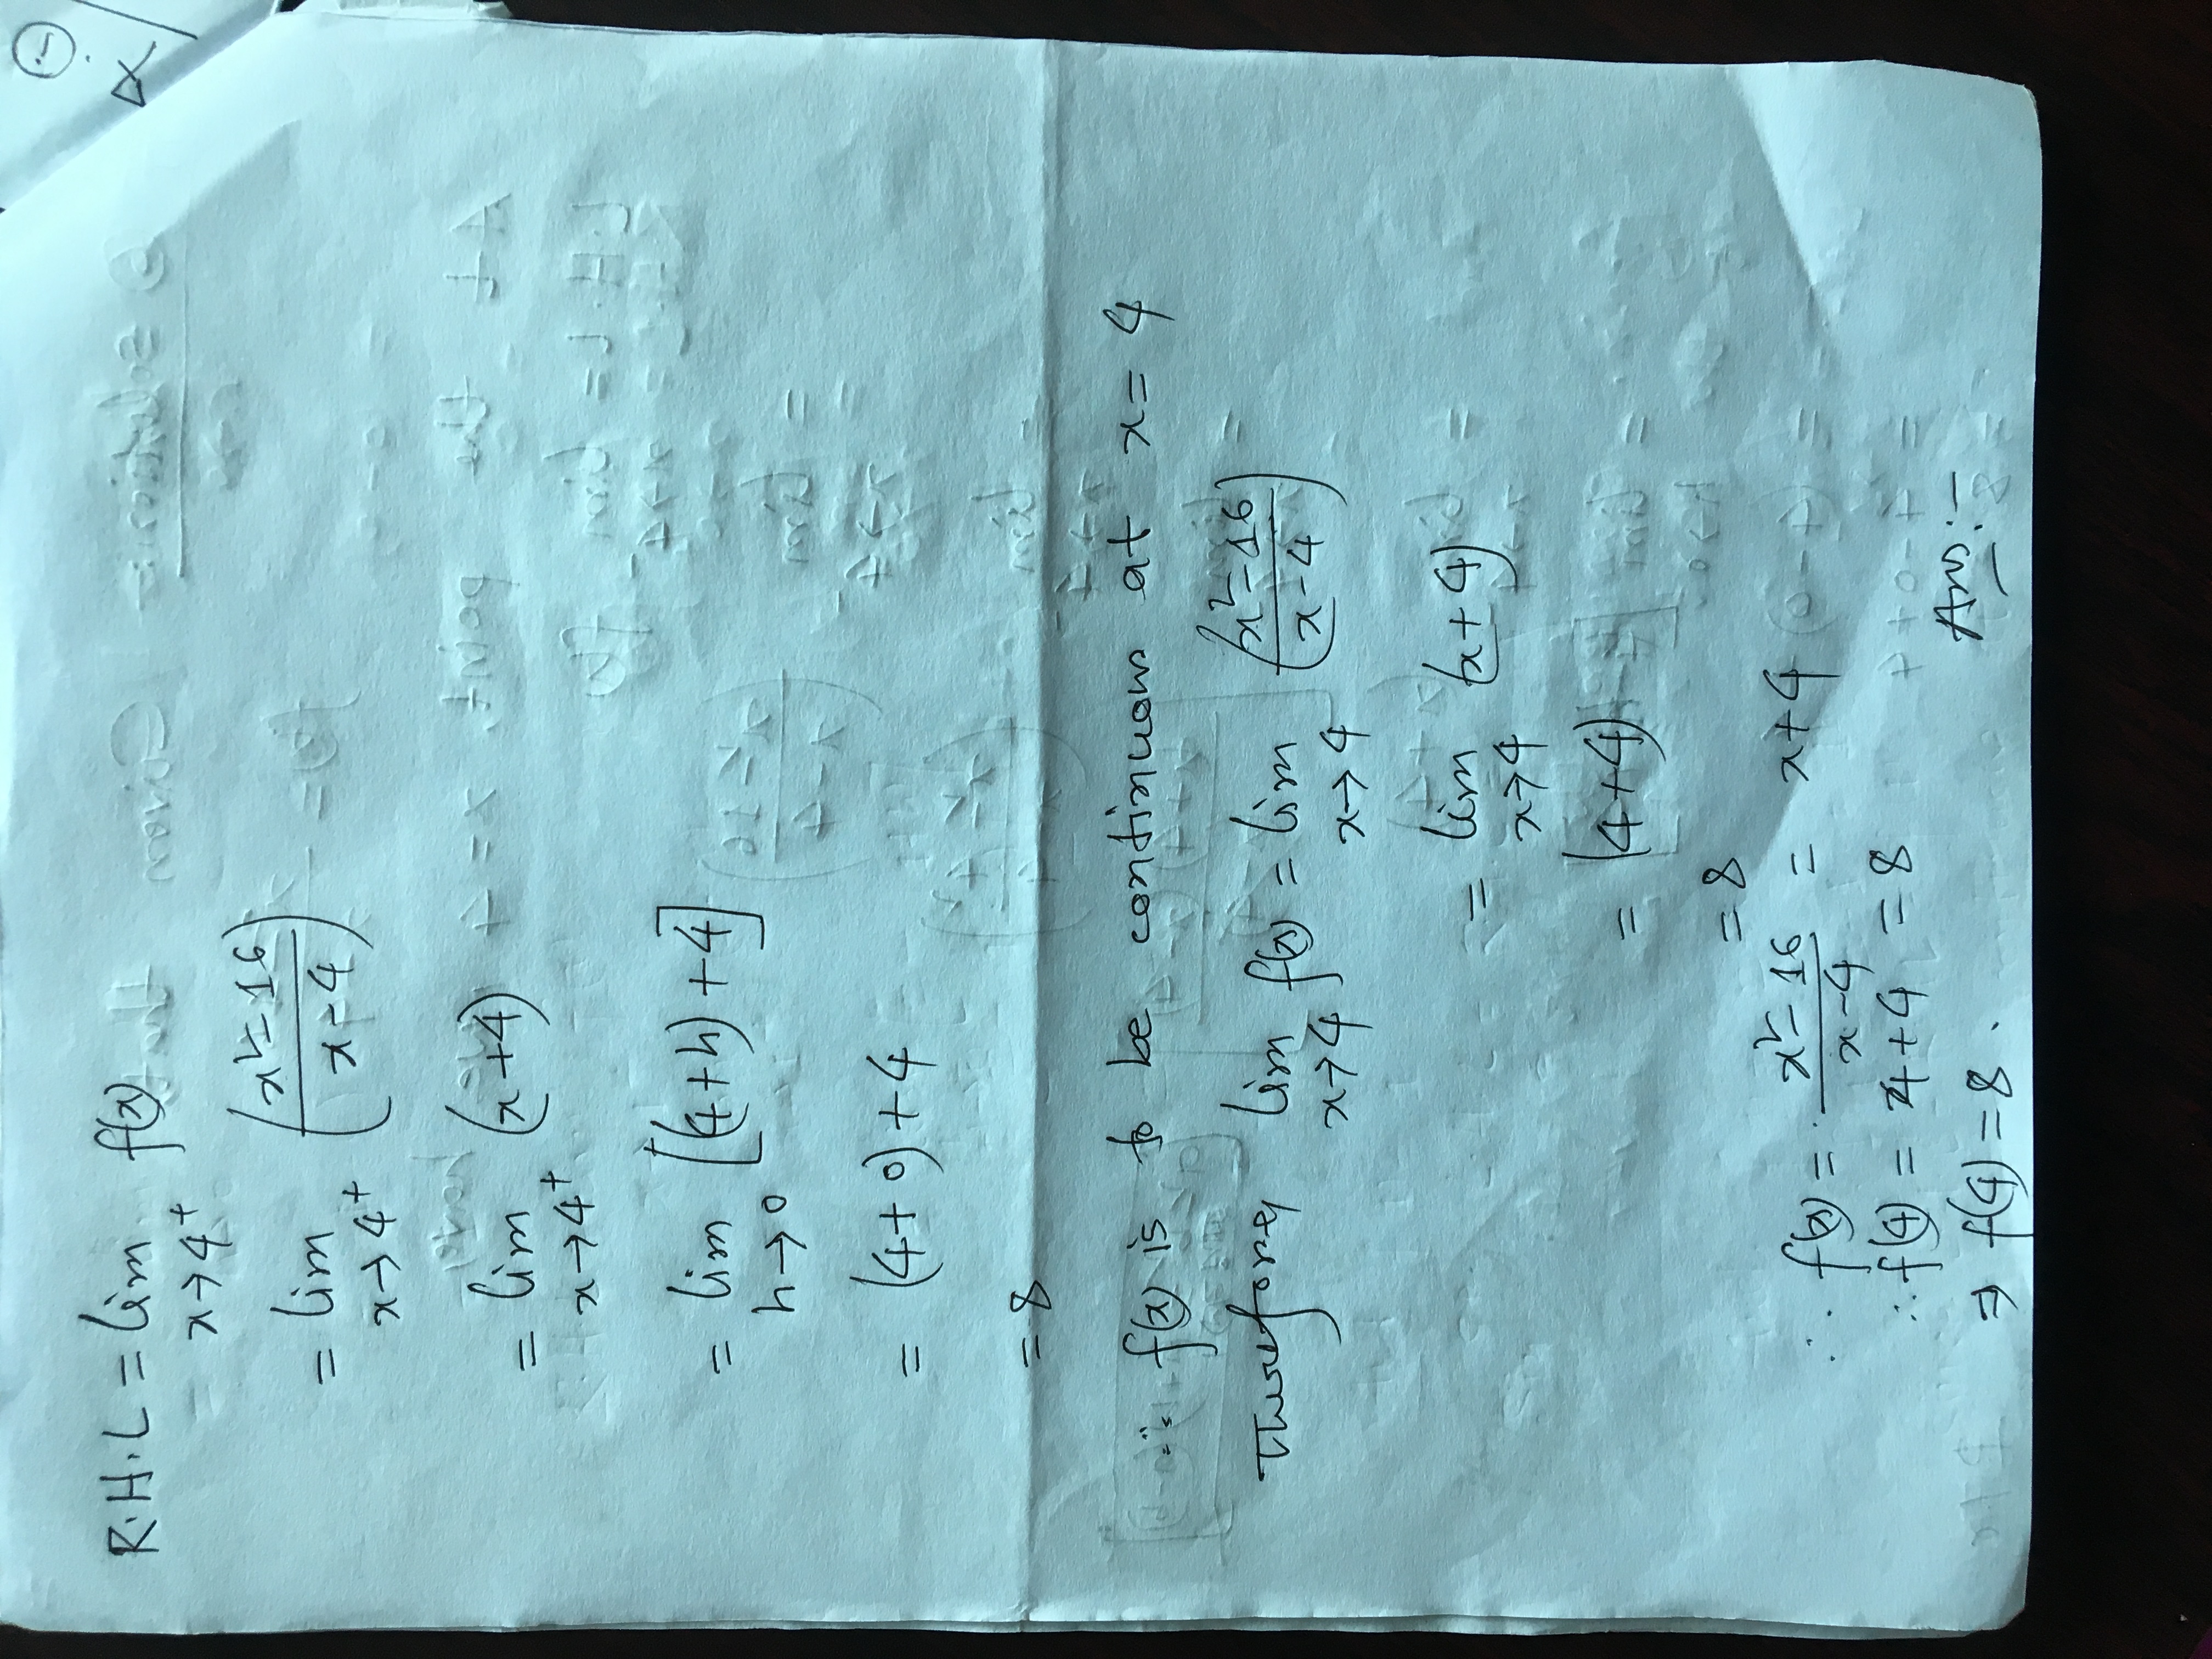 R.H.L = lim f(x)
x→4⁺
= lim (x²-16 / x-4)
x→4⁺
= lim (x+4)
x→4⁺
= lim [(4+h)+4]
h→0
= (4+0)+4
= 8
∵ f(x) is to be continuous at x = 4
Therefore, lim f(x) = lim (x²-16 / x-4)
x→4 x→4
= lim (x+4)
x→4
= (4+4)
= 8
∴ f(x) = x²-16 / x-4 = x+4
∴ f(4) = 4+4 = 8
⇒ f(4) = 8. Ans:-